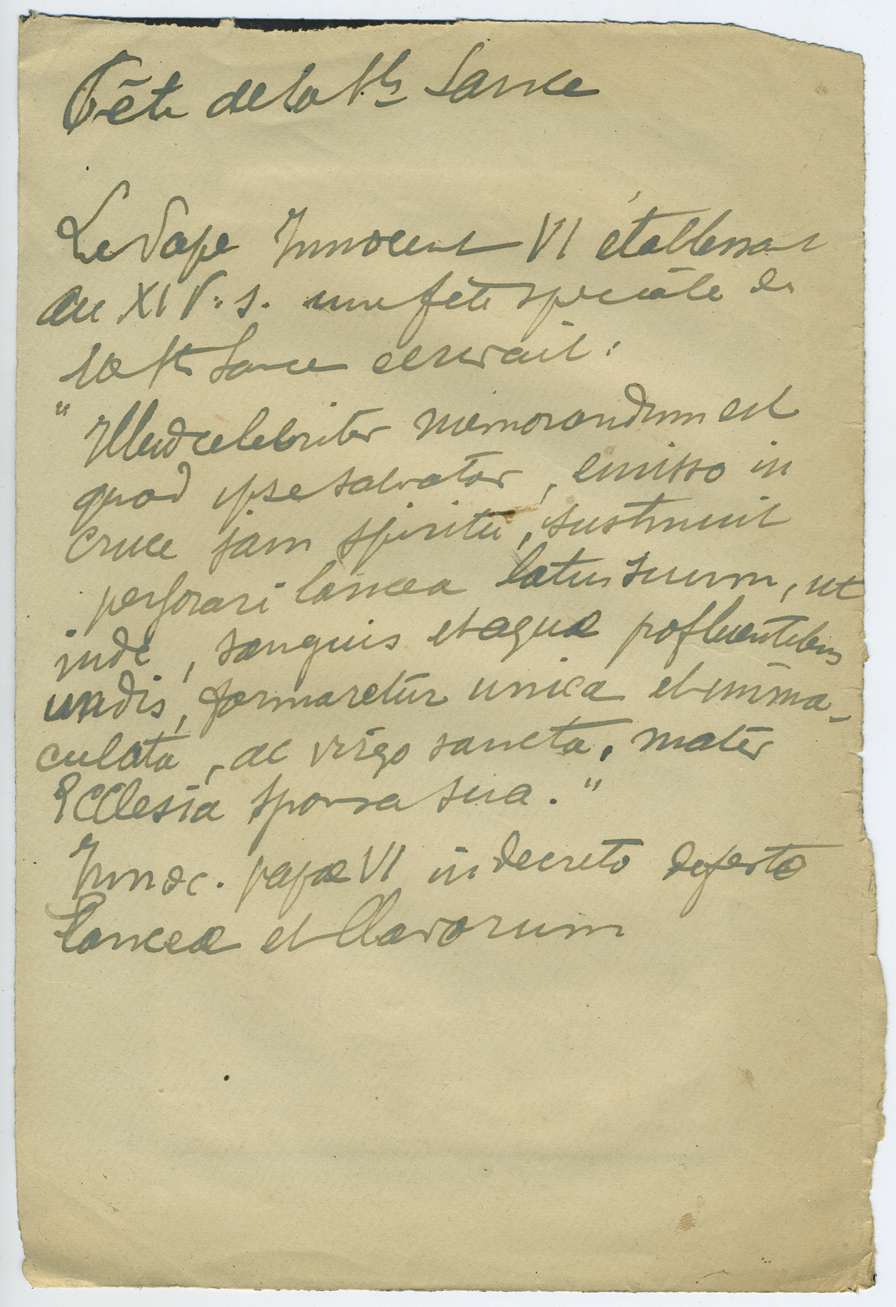 Fête de la Ste Lance
Le Pape Innocent VI établissant
au XIVe. s. une fête spéciale de
la Ste Lance écrivait :
"Illud celebriter memorandum est
quod ipse salvator, emisso in
cruce jam spiritu, sustinuit
perforari lancea latus suum, ut
inde, sanguis et aquæ profluentibus
undis, formaretur unica et imma-
culata, ac virgo sancta, mater
Ecclesia sponsa sua."
Innoc. papæ VI in decreto de festo
Lanceæ et Clavorum